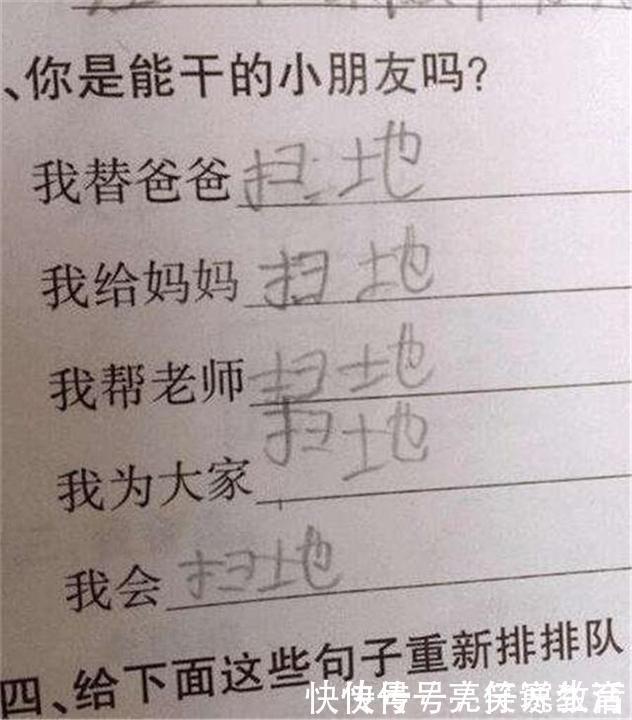 、你是能干的小朋友吗?
我替爸爸扫地
我给妈妈扫地
我帮老师扫地
我为大家扫地
我会扫地
四、给下面这些句子重新排排队